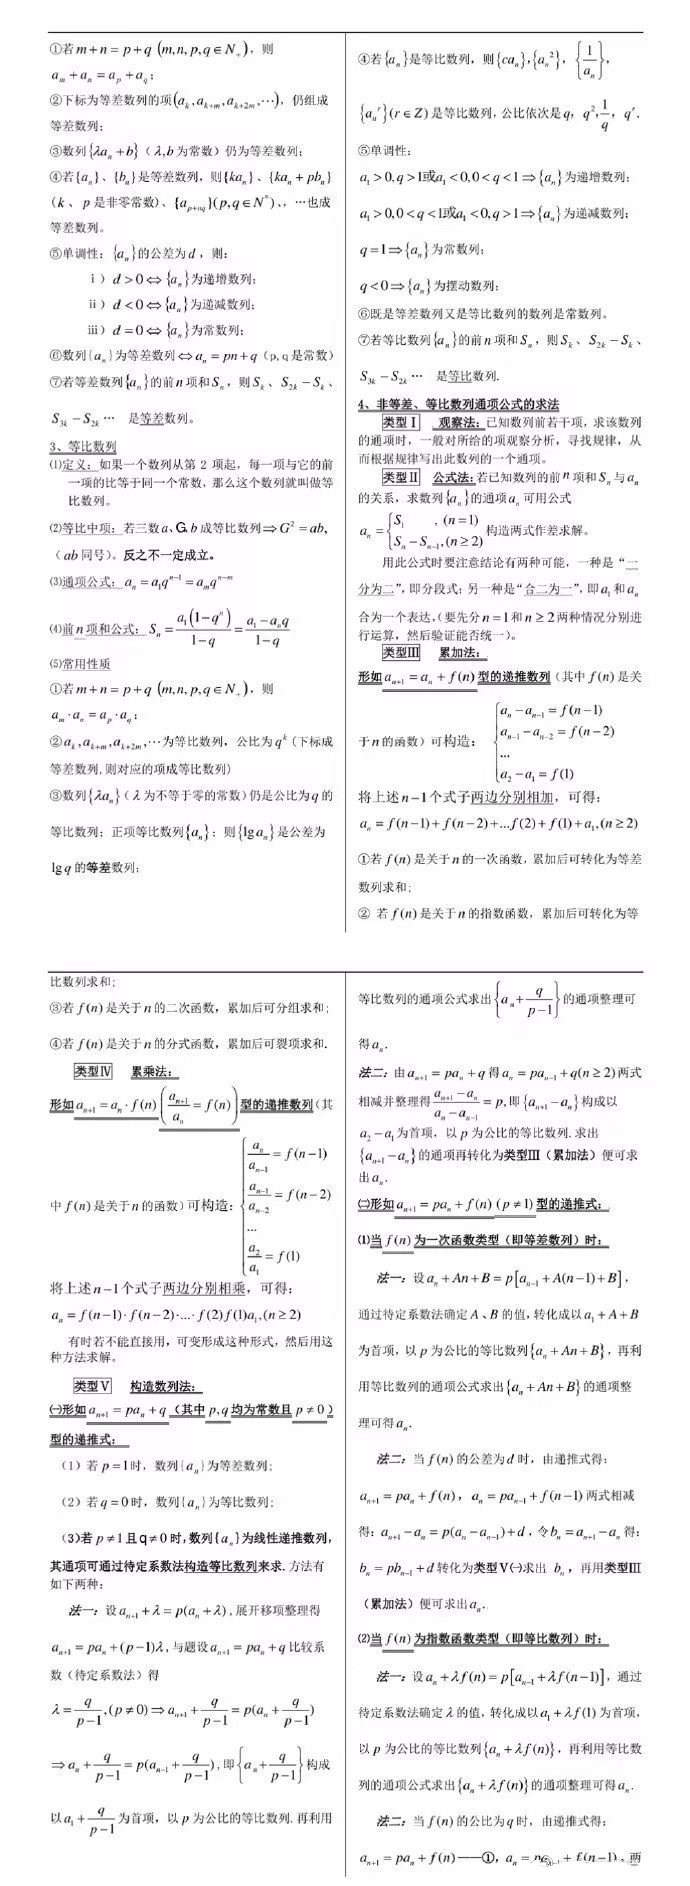 ①若 m+n=p+q (m,n,p,q∈N₊)，则
aₘ+aₙ=aₚ+a_q；
②下标为等差数列的项(a_k,a_{k+m},a_{k+2m},…)，仍组成
等差数列；
③数列{λaₙ+b}（λ,b为常数）仍为等差数列；
④若{aₙ}、{bₙ}是等差数列，则{kaₙ}、{kaₙ+pbₙ}
(k、p是非零常数)、{a_{p+nq}}(p,q∈N*)、，…也成
等差数列。
⑤单调性：{aₙ}的公差为d，则：
ⅰ）d>0⇔{aₙ}为递增数列；
ⅱ）d<0⇔{aₙ}为递减数列；
ⅲ）d=0⇔{aₙ}为常数列；
⑥数列{aₙ}为等差数列⇔aₙ=pn+q（p,q是常数）
⑦若等差数列{aₙ}的前n项和Sₙ，则S_k、S_{2k}−S_k、
S_{3k}−S_{2k}… 是等差数列。
3、等比数列
⑴定义：如果一个数列从第 2 项起，每一项与它的前
一项的比等于同一个常数，那么这个数列就叫做等
比数列。
⑵等比中项：若三数a、G、b成等比数列⇒G²=ab,
（ab同号）。反之不一定成立。
⑶通项公式：aₙ=a₁qⁿ⁻¹=aₘqⁿ⁻ᵐ
⑷前n项和公式：Sₙ=a₁(1−qⁿ)/(1−q)=(a₁−aₙq)/(1−q)
⑸常用性质
①若m+n=p+q (m,n,p,q∈N₊)，则
aₘ·aₙ=aₚ·a_q；
②a_k,a_{k+m},a_{k+2m},…为等比数列，公比为q^k(下标成
等差数列,则对应的项成等比数列)
③数列{λaₙ}（λ为不等于零的常数）仍是公比为q的
等比数列；正项等比数列{aₙ}；则{lgaₙ}是公差为
lgq的等差数列；
④若{aₙ}是等比数列，则{caₙ},{aₙ²}，{1/aₙ}，
{aₙʳ}(r∈Z)是等比数列，公比依次是q，q²,1/q，qʳ.
⑤单调性：
a₁>0,q>1或a₁<0,0<q<1⇒{aₙ}为递增数列；
a₁>0,0<q<1或a₁<0,q>1⇒{aₙ}为递减数列；
q=1⇒{aₙ}为常数列；
q<0⇒{aₙ}为摆动数列；
⑥既是等差数列又是等比数列的数列是常数列。
⑦若等比数列{aₙ}的前n项和Sₙ，则S_k、S_{2k}−S_k、
S_{3k}−S_{2k}… 是等比数列.
4、非等差、等比数列通项公式的求法
类型Ⅰ 观察法：已知数列前若干项，求该数列
的通项时，一般对所给的项观察分析，寻找规律，从
而根据规律写出此数列的一个通项。
类型Ⅱ 公式法：若已知数列的前n项和Sₙ与aₙ
的关系，求数列{aₙ}的通项aₙ可用公式
aₙ={S₁ ,(n=1)
Sₙ−Sₙ₋₁,(n≥2) 构造两式作差求解。
用此公式时要注意结论有两种可能，一种是“一
分为二”，即分段式；另一种是“合二为一”，即a₁和aₙ
合为一个表达，(要先分n=1和n≥2两种情况分别进
行运算，然后验证能否统一)。
类型Ⅲ 累加法：
形如aₙ₊₁=aₙ+f(n)型的递推数列（其中f(n)是关
于n的函数）可构造：{aₙ−aₙ₋₁=f(n−1)
aₙ₋₁−aₙ₋₂=f(n−2)
...
a₂−a₁=f(1)
将上述n−1个式子两边分别相加，可得：
aₙ=f(n−1)+f(n−2)+...f(2)+f(1)+a₁,(n≥2)
①若f(n)是关于n的一次函数，累加后可转化为等差
数列求和;
② 若f(n)是关于n的指数函数，累加后可转化为等
比数列求和;
③若f(n)是关于n的二次函数，累加后可分组求和;
④若f(n)是关于n的分式函数，累加后可裂项求和.
类型Ⅳ 累乘法：
形如aₙ₊₁=aₙ·f(n)(aₙ₊₁/aₙ=f(n))型的递推数列（其
中f(n)是关于n的函数）可构造：{aₙ/aₙ₋₁=f(n−1)
aₙ₋₁/aₙ₋₂=f(n−2)
...
a₂/a₁=f(1)
将上述n−1个式子两边分别相乘，可得：
aₙ=f(n−1)·f(n−2)·...·f(2)f(1)a₁,(n≥2)
有时若不能直接用，可变形成这种形式，然后用这
种方法求解。
类型Ⅴ 构造数列法：
㈠形如aₙ₊₁=paₙ+q（其中p,q均为常数且p≠0）
型的递推式：
（1）若p=1时，数列{aₙ}为等差数列;
（2）若q=0时，数列{aₙ}为等比数列;
（3）若p≠1且q≠0时,数列{aₙ}为线性递推数列,
其通项可通过待定系数法构造等比数列来求.方法有
如下两种：
法一：设aₙ₊₁+λ=p(aₙ+λ),展开移项整理得
aₙ₊₁=paₙ+(p−1)λ,与题设aₙ₊₁=paₙ+q比较系
数（待定系数法）得
λ=q/(p−1),(p≠0)⇒aₙ₊₁+q/(p−1)=p(aₙ+q/(p−1))
⇒aₙ+q/(p−1)=p(aₙ₋₁+q/(p−1)),即{aₙ+q/(p−1)}构成
以a₁+q/(p−1)为首项，以p为公比的等比数列.再利用
等比数列的通项公式求出{aₙ+q/(p−1)}的通项整理可
得aₙ.
法二：由aₙ₊₁=paₙ+q得aₙ=paₙ₋₁+q(n≥2)两式
相减并整理得(aₙ₊₁−aₙ)/(aₙ−aₙ₋₁)=p,即{aₙ₊₁−aₙ}构成以
a₂−a₁为首项，以p为公比的等比数列.求出
{aₙ₊₁−aₙ}的通项再转化为类型Ⅲ（累加法）便可求
出aₙ.
㈡形如aₙ₊₁=paₙ+f(n)(p≠1)型的递推式：
⑴当f(n)为一次函数类型（即等差数列）时：
法一：设aₙ+An+B=p[aₙ₋₁+A(n−1)+B]，
通过待定系数法确定A、B的值，转化成以a₁+A+B
为首项，以p为公比的等比数列{aₙ+An+B}，再利
用等比数列的通项公式求出{aₙ+An+B}的通项整
理可得aₙ.
法二：当f(n)的公差为d时，由递推式得：
aₙ₊₁=paₙ+f(n)，aₙ=paₙ₋₁+f(n−1)两式相减
得：aₙ₊₁−aₙ=p(aₙ−aₙ₋₁)+d,令bₙ=aₙ₊₁−aₙ得：
bₙ=pbₙ₋₁+d转化为类型Ⅴ㈠求出 bₙ，再用类型Ⅲ
（累加法）便可求出aₙ.
⑵当f(n)为指数函数类型（即等比数列）时：
法一：设aₙ+λf(n)=p[aₙ₋₁+λf(n−1)]，通过
待定系数法确定λ的值，转化成以a₁+λf(1)为首项，
以p为公比的等比数列{aₙ+λf(n)}，再利用等比数
列的通项公式求出{aₙ+λf(n)}的通项整理可得aₙ.
法二：当f(n)的公比为q时，由递推式得：
aₙ₊₁=paₙ+f(n)——①，aₙ=paₙ₋₁+f(n−1)，两